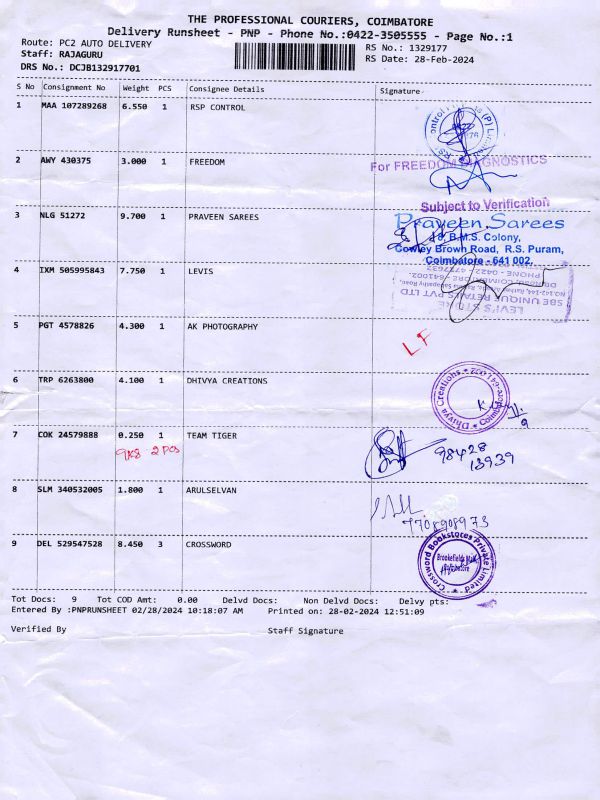 THE PROFESSIONAL COURIERS, COIMBATORE
Delivery Runsheet - PNP - Phone No.:0422-3505555 - Page No.:1
Route: PC2 AUTO DELIVERY
RS No.: 1329177
Staff: RAJAGURU
RS Date: 28-Feb-2024
DRS No.: DCJB132917701
S No Consignment No Weight PCS Consignee Details Signature
1 MAA 107289268 6.550 1 RSP CONTROL
2 AWY 430375 3.000 1 FREEDOM
For FREEDOM DIAGNOSTICS
Subject to Verification
3 NLG 51272 9.700 1 PRAVEEN SAREES
Praveen Sarees
B.M.S. Colony,
Cowley Brown Road, R.S. Puram,
Coimbatore - 641 002,
4 IXM 505995843 7.750 1 LEVIS
LEVI'S STORE
SBE UNIQUE RETAILS PVT LTD
5 PGT 4578826 4.300 1 AK PHOTOGRAPHY
LF
6 TRP 6263800 4.100 1 DHIVYA CREATIONS
Dhivya Creations
7 COK 24579888 0.250 1 TEAM TIGER
2 PCS
98428
13939
8 SLM 340532005 1.800 1 ARULSELVAN
7708908973
9 DEL 529547528 8.450 3 CROSSWORD
Crossword Bookstores Private Limited
Brookefields Mall
Coimbatore
Tot Docs: 9 Tot COD Amt: 0.00 Delvd Docs: Non Delvd Docs: Delvy pts:
Entered By :PNPRUNSHEET 02/28/2024 10:18:07 AM Printed on: 28-02-2024 12:51:09
Verified By Staff Signature